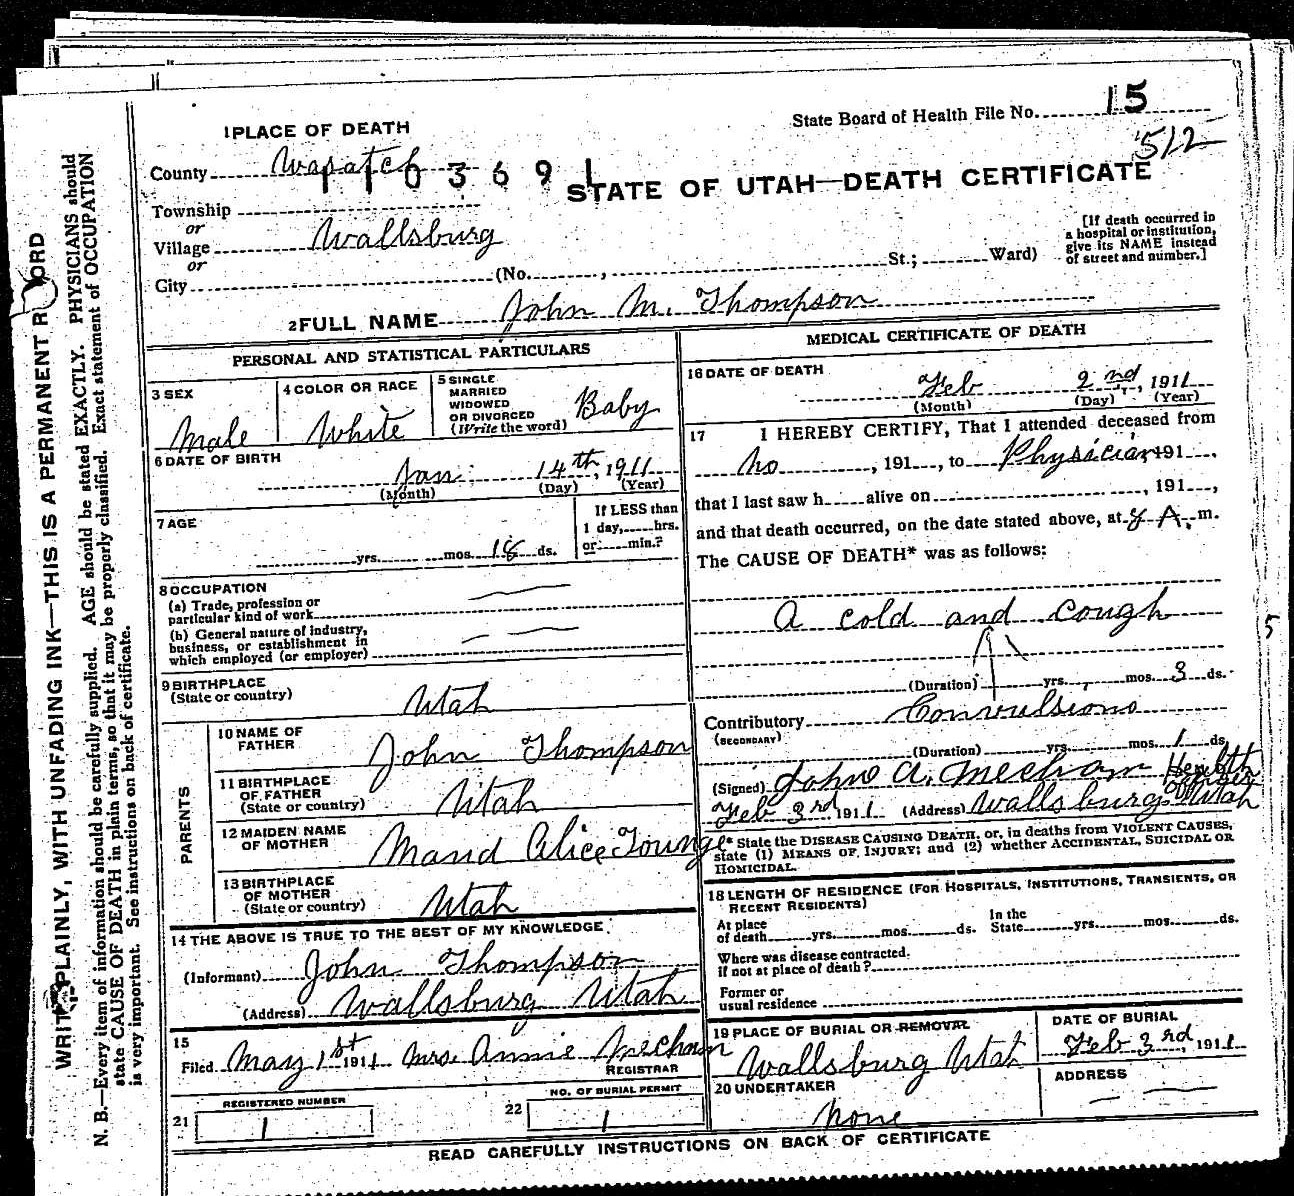 State Board of Health File No. 15
512
1 PLACE OF DEATH
County Wasatch
1103691
STATE OF UTAH—DEATH CERTIFICATE
Township
or
Village Wallsburg
or
City (No. , St.; Ward)
[If death occurred in
a hospital or institution,
give its NAME instead
of street and number.]
2 FULL NAME John M. Thompson
PERSONAL AND STATISTICAL PARTICULARS
3 SEX
Male
4 COLOR OR RACE
White
5 SINGLE
MARRIED
WIDOWED
OR DIVORCED
(Write the word) Baby
6 DATE OF BIRTH
Jan. 14th, 1911
(Month) (Day) (Year)
7 AGE
yrs. mos. 18 ds.
If LESS than
1 day, hrs.
or min.?
8 OCCUPATION
(a) Trade, profession or
particular kind of work
(b) General nature of industry,
business, or establishment in
which employed (or employer)
9 BIRTHPLACE
(State or country) Utah
PARENTS
10 NAME OF
FATHER John Thompson
11 BIRTHPLACE
OF FATHER
(State or country) Utah
12 MAIDEN NAME
OF MOTHER Maud Alice Younge
13 BIRTHPLACE
OF MOTHER
(State or country) Utah
14 THE ABOVE IS TRUE TO THE BEST OF MY KNOWLEDGE
(Informant) John Thompson
(Address) Wallsburg Utah
15
Filed May 1st 1911 Mrs. Annie Mecham
REGISTRAR
21 REGISTERED NUMBER
1
22 NO. OF BURIAL PERMIT
1
MEDICAL CERTIFICATE OF DEATH
16 DATE OF DEATH
Feb 2nd, 1911
(Month) (Day) (Year)
17 I HEREBY CERTIFY, That I attended deceased from
no, 191 , to Physician 191 ,
that I last saw h alive on , 191 ,
and that death occurred, on the date stated above, at 8 A. m.
The CAUSE OF DEATH* was as follows:
A cold and cough
(Duration) yrs. mos. 3 ds.
5
Contributory Convulsions
(SECONDARY)
(Duration) yrs. mos. 1 ds.
(Signed) John A. Mecham Health
Officer
Feb 3rd 1911 (Address) Wallsburg Utah
* State the DISEASE CAUSING DEATH, or, in deaths from VIOLENT CAUSES,
state (1) MEANS OF INJURY; and (2) whether ACCIDENTAL, SUICIDAL OR
HOMICIDAL.
18 LENGTH OF RESIDENCE (FOR HOSPITALS, INSTITUTIONS, TRANSIENTS, OR
RECENT RESIDENTS)
At place
of death yrs. mos. ds.
In the
State yrs. mos. ds.
Where was disease contracted,
if not at place of death?
Former or
usual residence
19 PLACE OF BURIAL OR REMOVAL
Wallsburg Utah
DATE OF BURIAL
Feb 3rd, 1911
20 UNDERTAKER
None
ADDRESS
READ CAREFULLY INSTRUCTIONS ON BACK OF CERTIFICATE
WRITE PLAINLY, WITH UNFADING INK—THIS IS A PERMANENT RECORD
N. B.—Every item of information should be carefully supplied. AGE should be stated EXACTLY. PHYSICIANS should
state CAUSE OF DEATH in plain terms, so that it may be properly classified. Exact statement of OCCUPATION
is very important. See instructions on back of certificate.